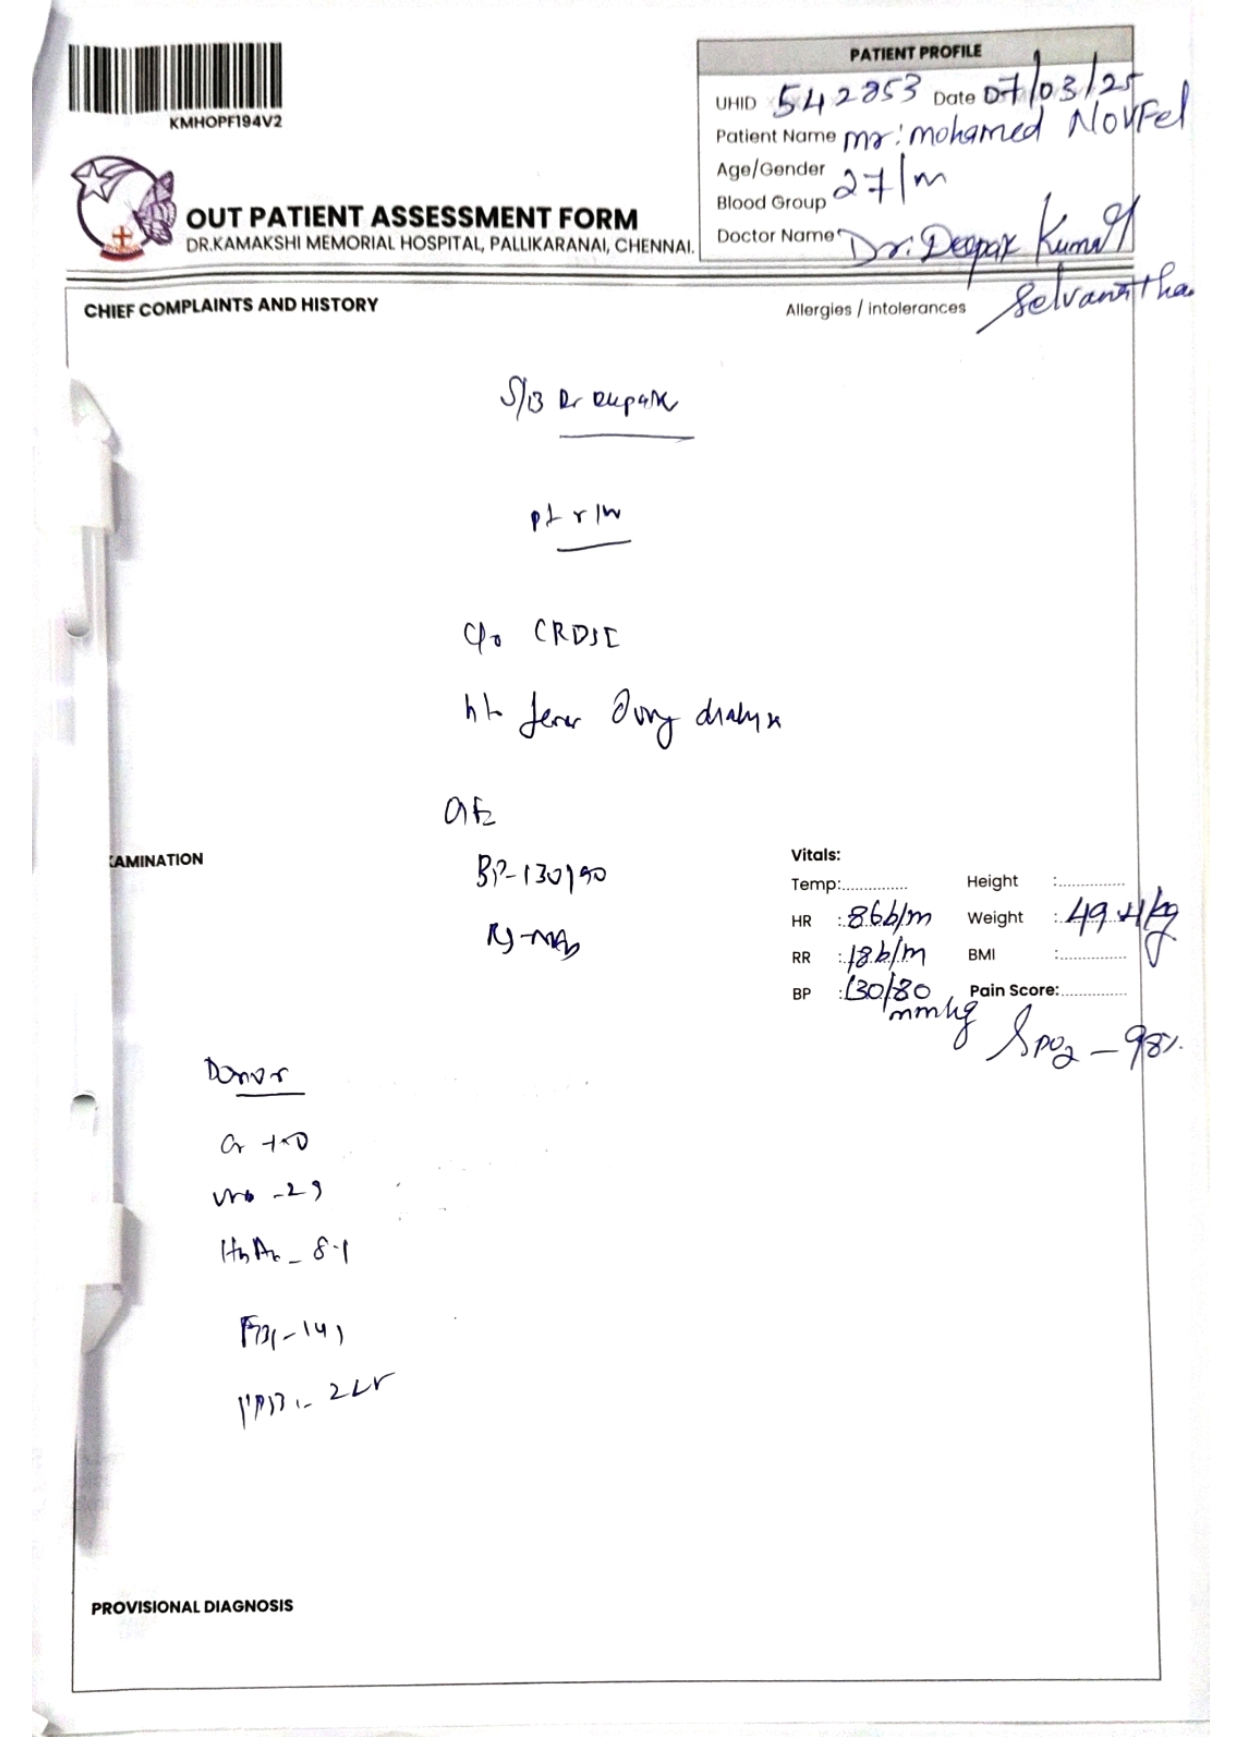 KMHOPF194V2
OUT PATIENT ASSESSMENT FORM
DR.KAMAKSHI MEMORIAL HOSPITAL, PALLIKARANAI, CHENNAI.
PATIENT PROFILE
UHID 542853 Date 07/03/25
Patient Name mr: mohamed NOUFel
Age/Gender 27/m
Blood Group
Doctor Name Dr. Deepak Kumar
CHIEF COMPLAINTS AND HISTORY
Allergies / intolerances
S/B Dr Deepak
pt r/w
c/o
h/o fever during dialysis
O/E
BP-130/90
AMINATION
Vitals:
Temp:..............
Height :..............
HR : 86b/m
Weight : 49.4kg
RR : 18b/m
BMI :..............
BP : 130/80 mmhg
Pain Score:..............
Spo2 - 98%
Donor
Cr
- 29
- 8.1
- 141
PROVISIONAL DIAGNOSIS